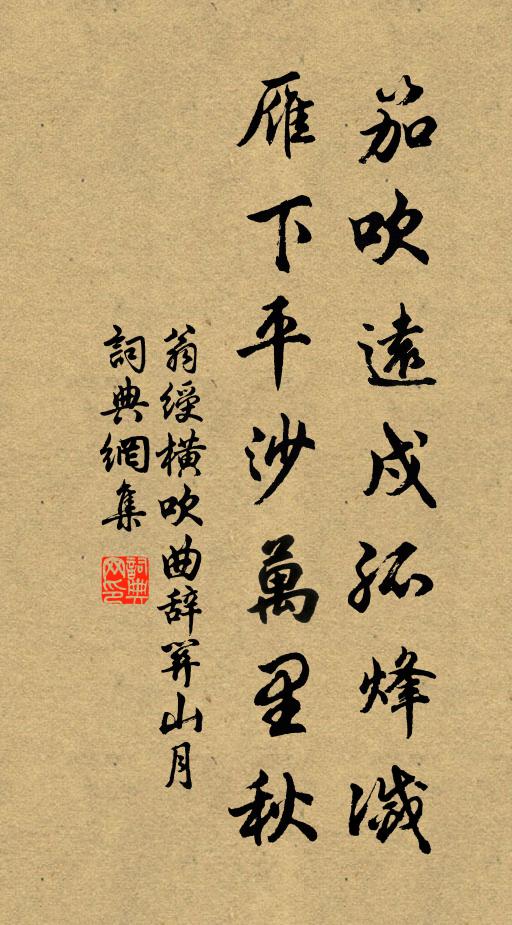 笳吹遠戍孤烽滅
雁下平沙萬里秋
翁綬橫吹曲辞關山月
詞典網集
詞典
网印